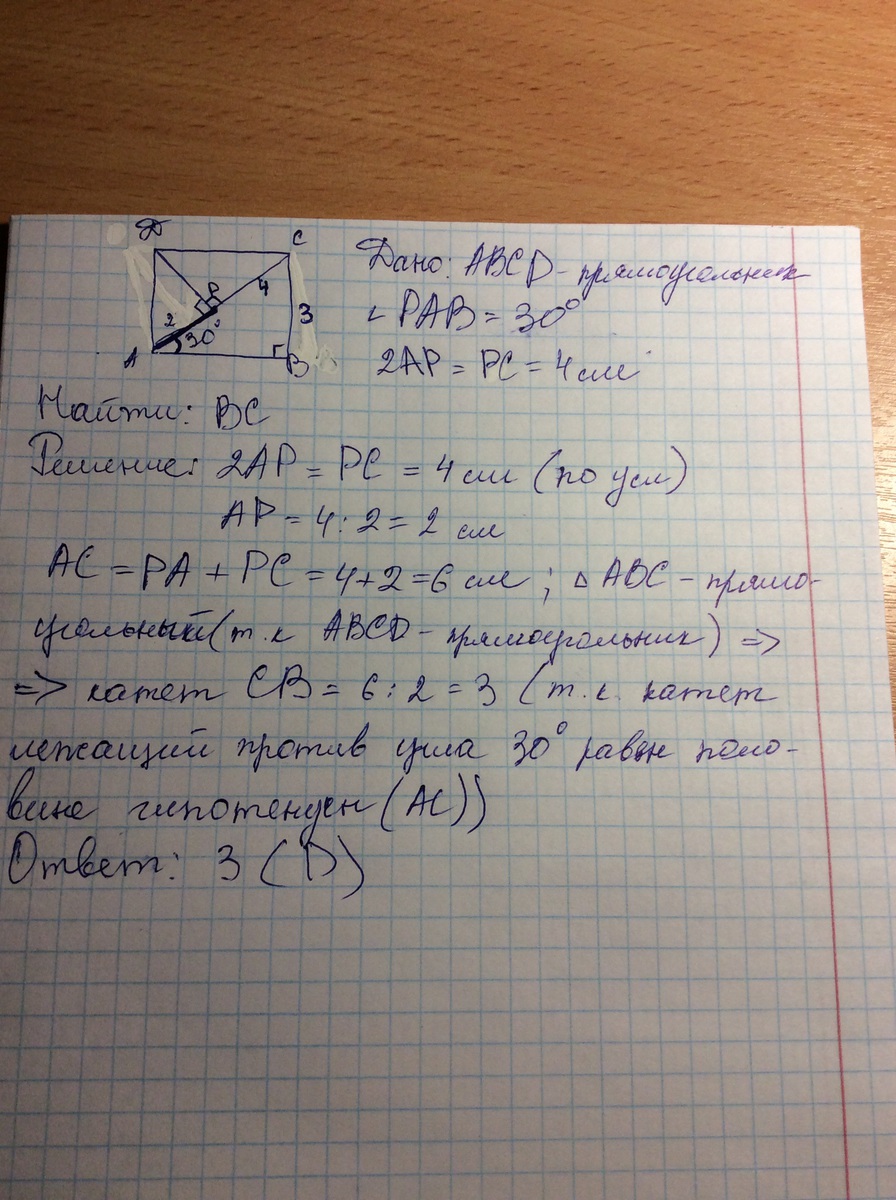 D C
P 4
2 3
30°
A B
Дано: ABCD - прямоугольник
∟ PAB = 30°
2AP = PC = 4 см
Найти: BC
Решение: 2AP = PC = 4 см (по усл)
AP = 4 : 2 = 2 см
AC = PA + PC = 4+2 = 6 см ; △ ABC - прямо-
угольный (т.к ABCD - прямоугольник) =>
=> катет CB = 6 : 2 = 3 (т.к. катет
лежащий против угла 30° равен поло-
вине гипотенузы (AC))
Ответ: 3 (D)